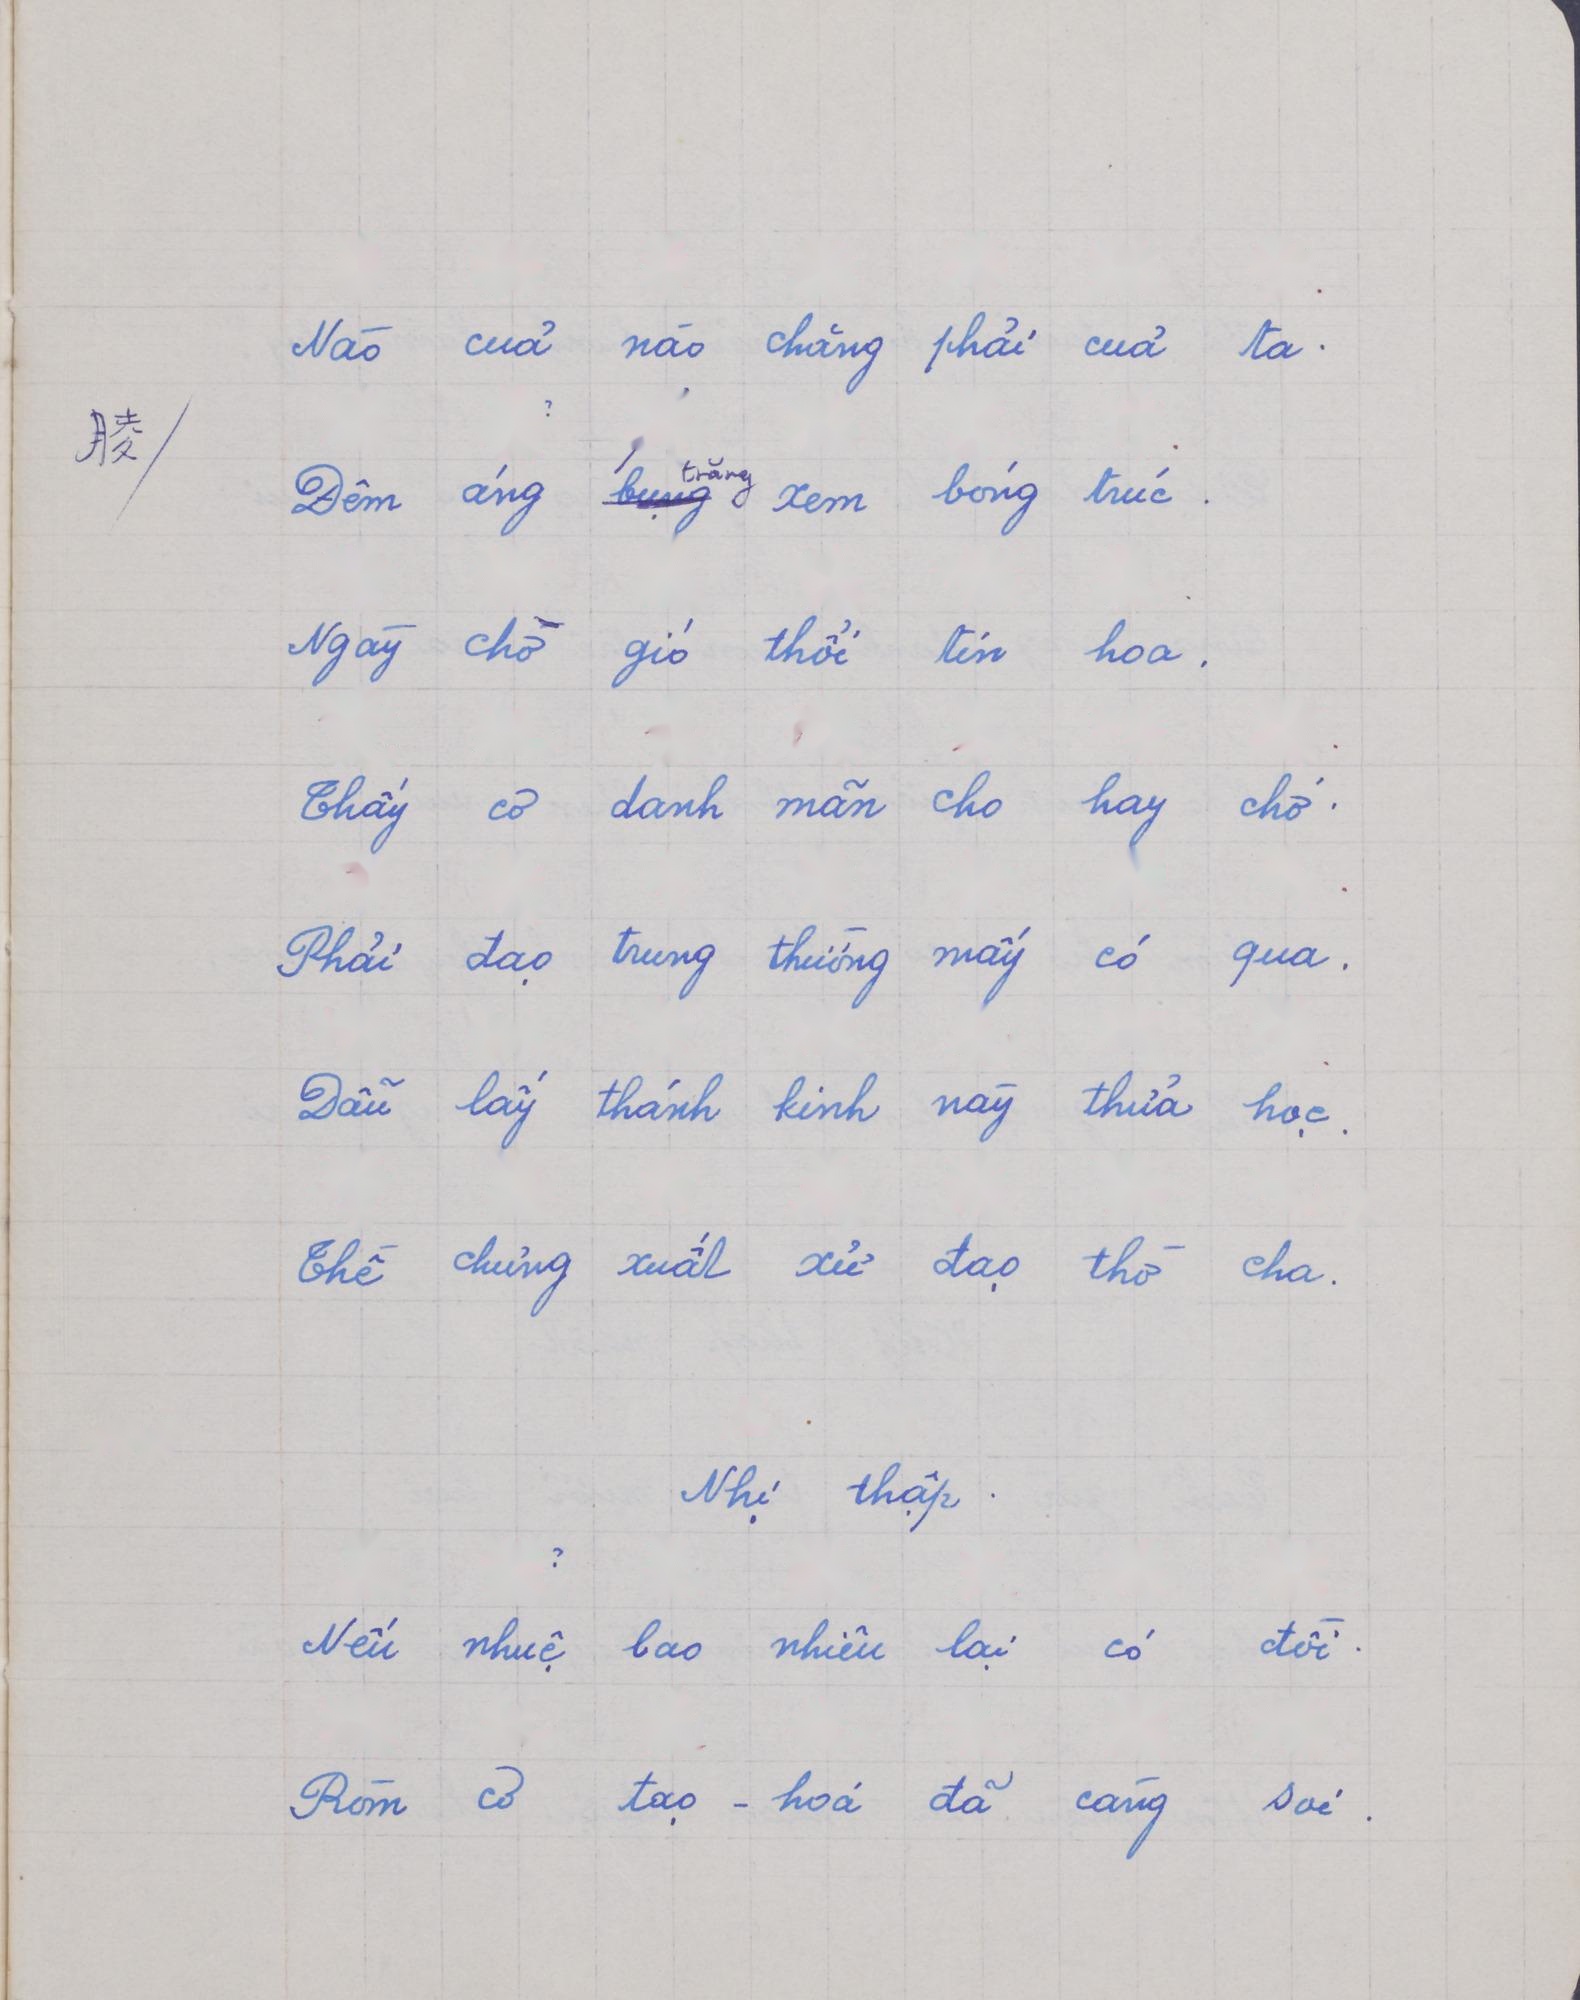 Nào cuả nào chăng phải cuả ta.
?
朘/
Đêm áng bụng trăng xem bóng trúc.
Ngaỳ chờ gió thổi tín hoa.
Thấy cơ danh mãn cho hay chớ.
Phải đạo trung thường mấy có qua.
Dẫu lấy thánh kinh naỳ thửa học.
Thề chưng xuất xử đạo thờ cha.
Nhị thập.
?
Nếu nhuệ bao nhiêu lại có đồi.
Ròm cơ tạo - hoá đã càng soi.